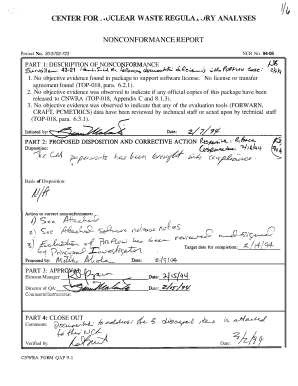 1/6
CENTER FOR NUCLEAR WASTE REGULATORY ANALYSES
NONCONFORMANCE REPORT
Project No. 20-5702-723 NCR No. 94-05
PART 1: DESCRIPTION OF NONCONFORMANCE
1. No objective evidence found in package to support software license. No license or transfer
agreement found (TOP-018, para. 6.2.1).
2. No objective evidence was observed to indicate if any official copies of this package have been released
to CNWRA (TOP-018, Appendix C and 8.1.3).
3. No objective evidence was observed to indicate that any of the evaluation tools (FORWARN,
CRAFT, PCMETRICS) data have been reviewed by technical staff or acted upon by technical staff
(TOP-018, para. 6.3.1).
Initiated by: Date: 2/7/94
PART 2: PROPOSED DISPOSITION AND CORRECTIVE ACTION
Disposition:
The CM paperwork has been brought into compliance.
Basis of Disposition:
N/A
Action to correct nonconformance:
1) See Attached
2) See Attached Software release notes
3) Evaluation of PORFLOW has been reviewed and signed
by Principal Investigator
Target date for completion: 2/14/94
Proposed by: Date:
PART 3: APPROVAL
Element Manager: Date: 2/15/94
Director of QA: Date: 2/15/94
Comments/Instructions:
PART 4: CLOSE OUT
Comments: Documents to address the 3 discrepant items is attached
to this NCR
Verified by: Date: 3/2/94
CNWRA FORM QAP 9-1